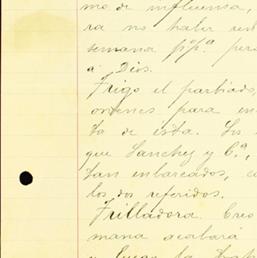 mo de influensa,
ra no haber
semana pp.ª per
á Dios.
Trigo el partiado,
ordenes para en
ta de esta. Los
que Sanchez y C.ª,
tan enbarcados, c
los dos referidos.
Trilladora. Creo
mana acabará